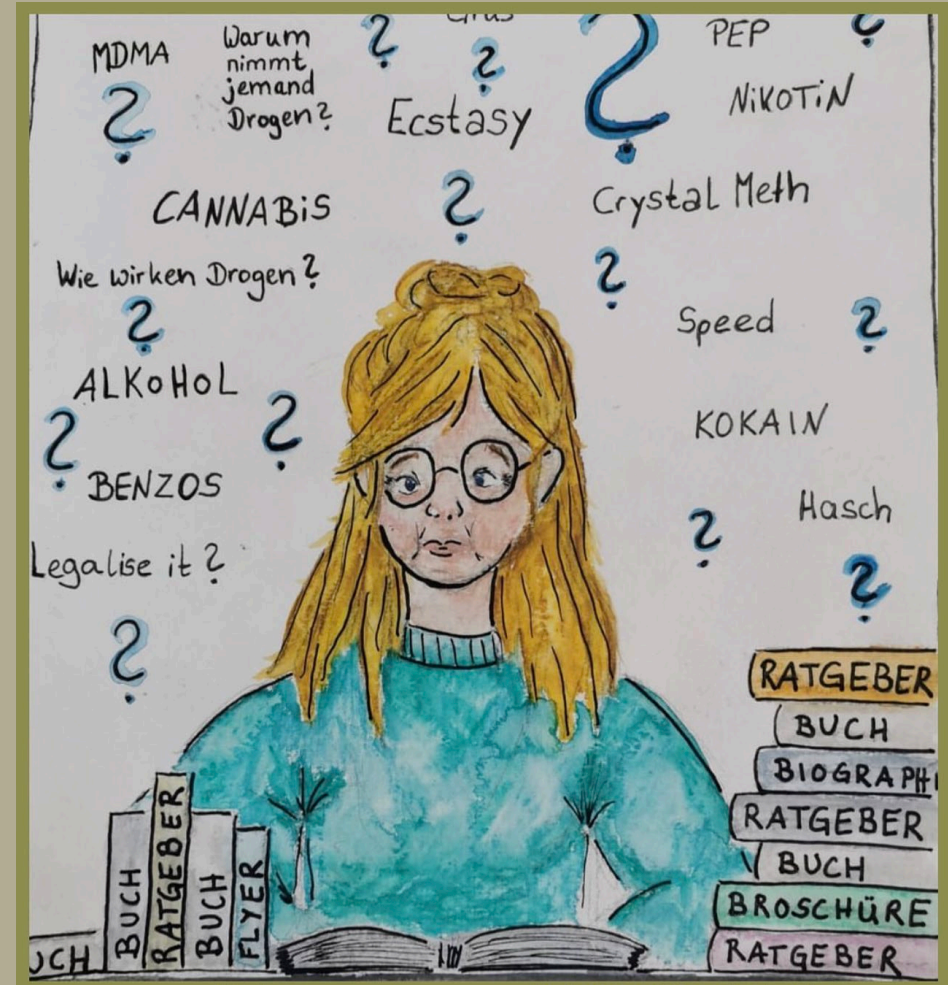 MDMA
Warum
nimmt
jemand
Drogen?
?
?
?
?
PEP
?
?
NiKOTiN
Ecstasy
CANNABiS
?
Crystal Meth
Wie wirken Drogen?
?
?
Speed
?
ALKOHOL
?
?
KOKAIN
BENZOS
Hasch
?
Legalise it?
?
?
RATGEBER
BUCH
BIOGRAPHI
RATGEBER
BUCH
BROSCHÜRE
RATGEBER
UCH
BUCH
RATGEBER
BUCH
FLYER